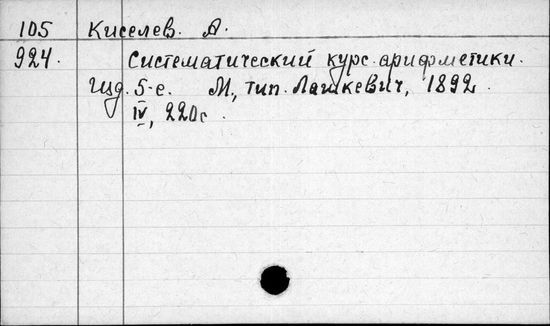 105 Киселев. А.
924. Систематический курс арифметики.
Изд. 5-е. М., тип. Лашкевич, 1892.
IV, 220с.